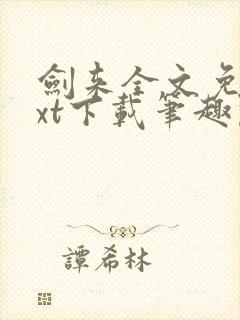 劍来全文免
xt下載筆趣
譚希林